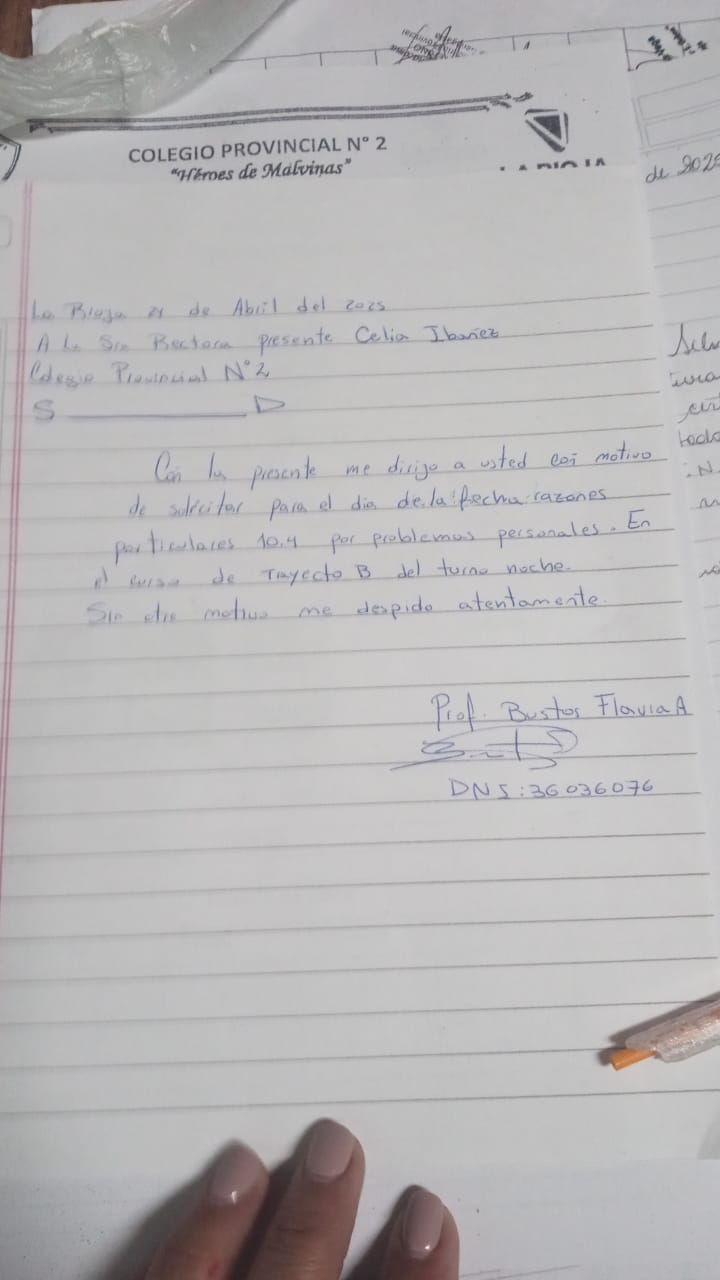 COLEGIO PROVINCIAL N° 2
"Héroes de Malvinas"
LA RIOJA
de 2025
La Rioja 21 de Abril del 2025
A La Sra Rectora presente Celia Ibañez
Colegio Provincial N°2
S D
Con la presente me dirijo a usted con motivo
de solicitar para el dia de la fecha razones
particulares 10.4 por problemas personales. En
el curso de Trayecto B del turno noche.
Sin otro motivo me despido atentamente.
Prof. Bustos Flavia A
DNI: 36036076